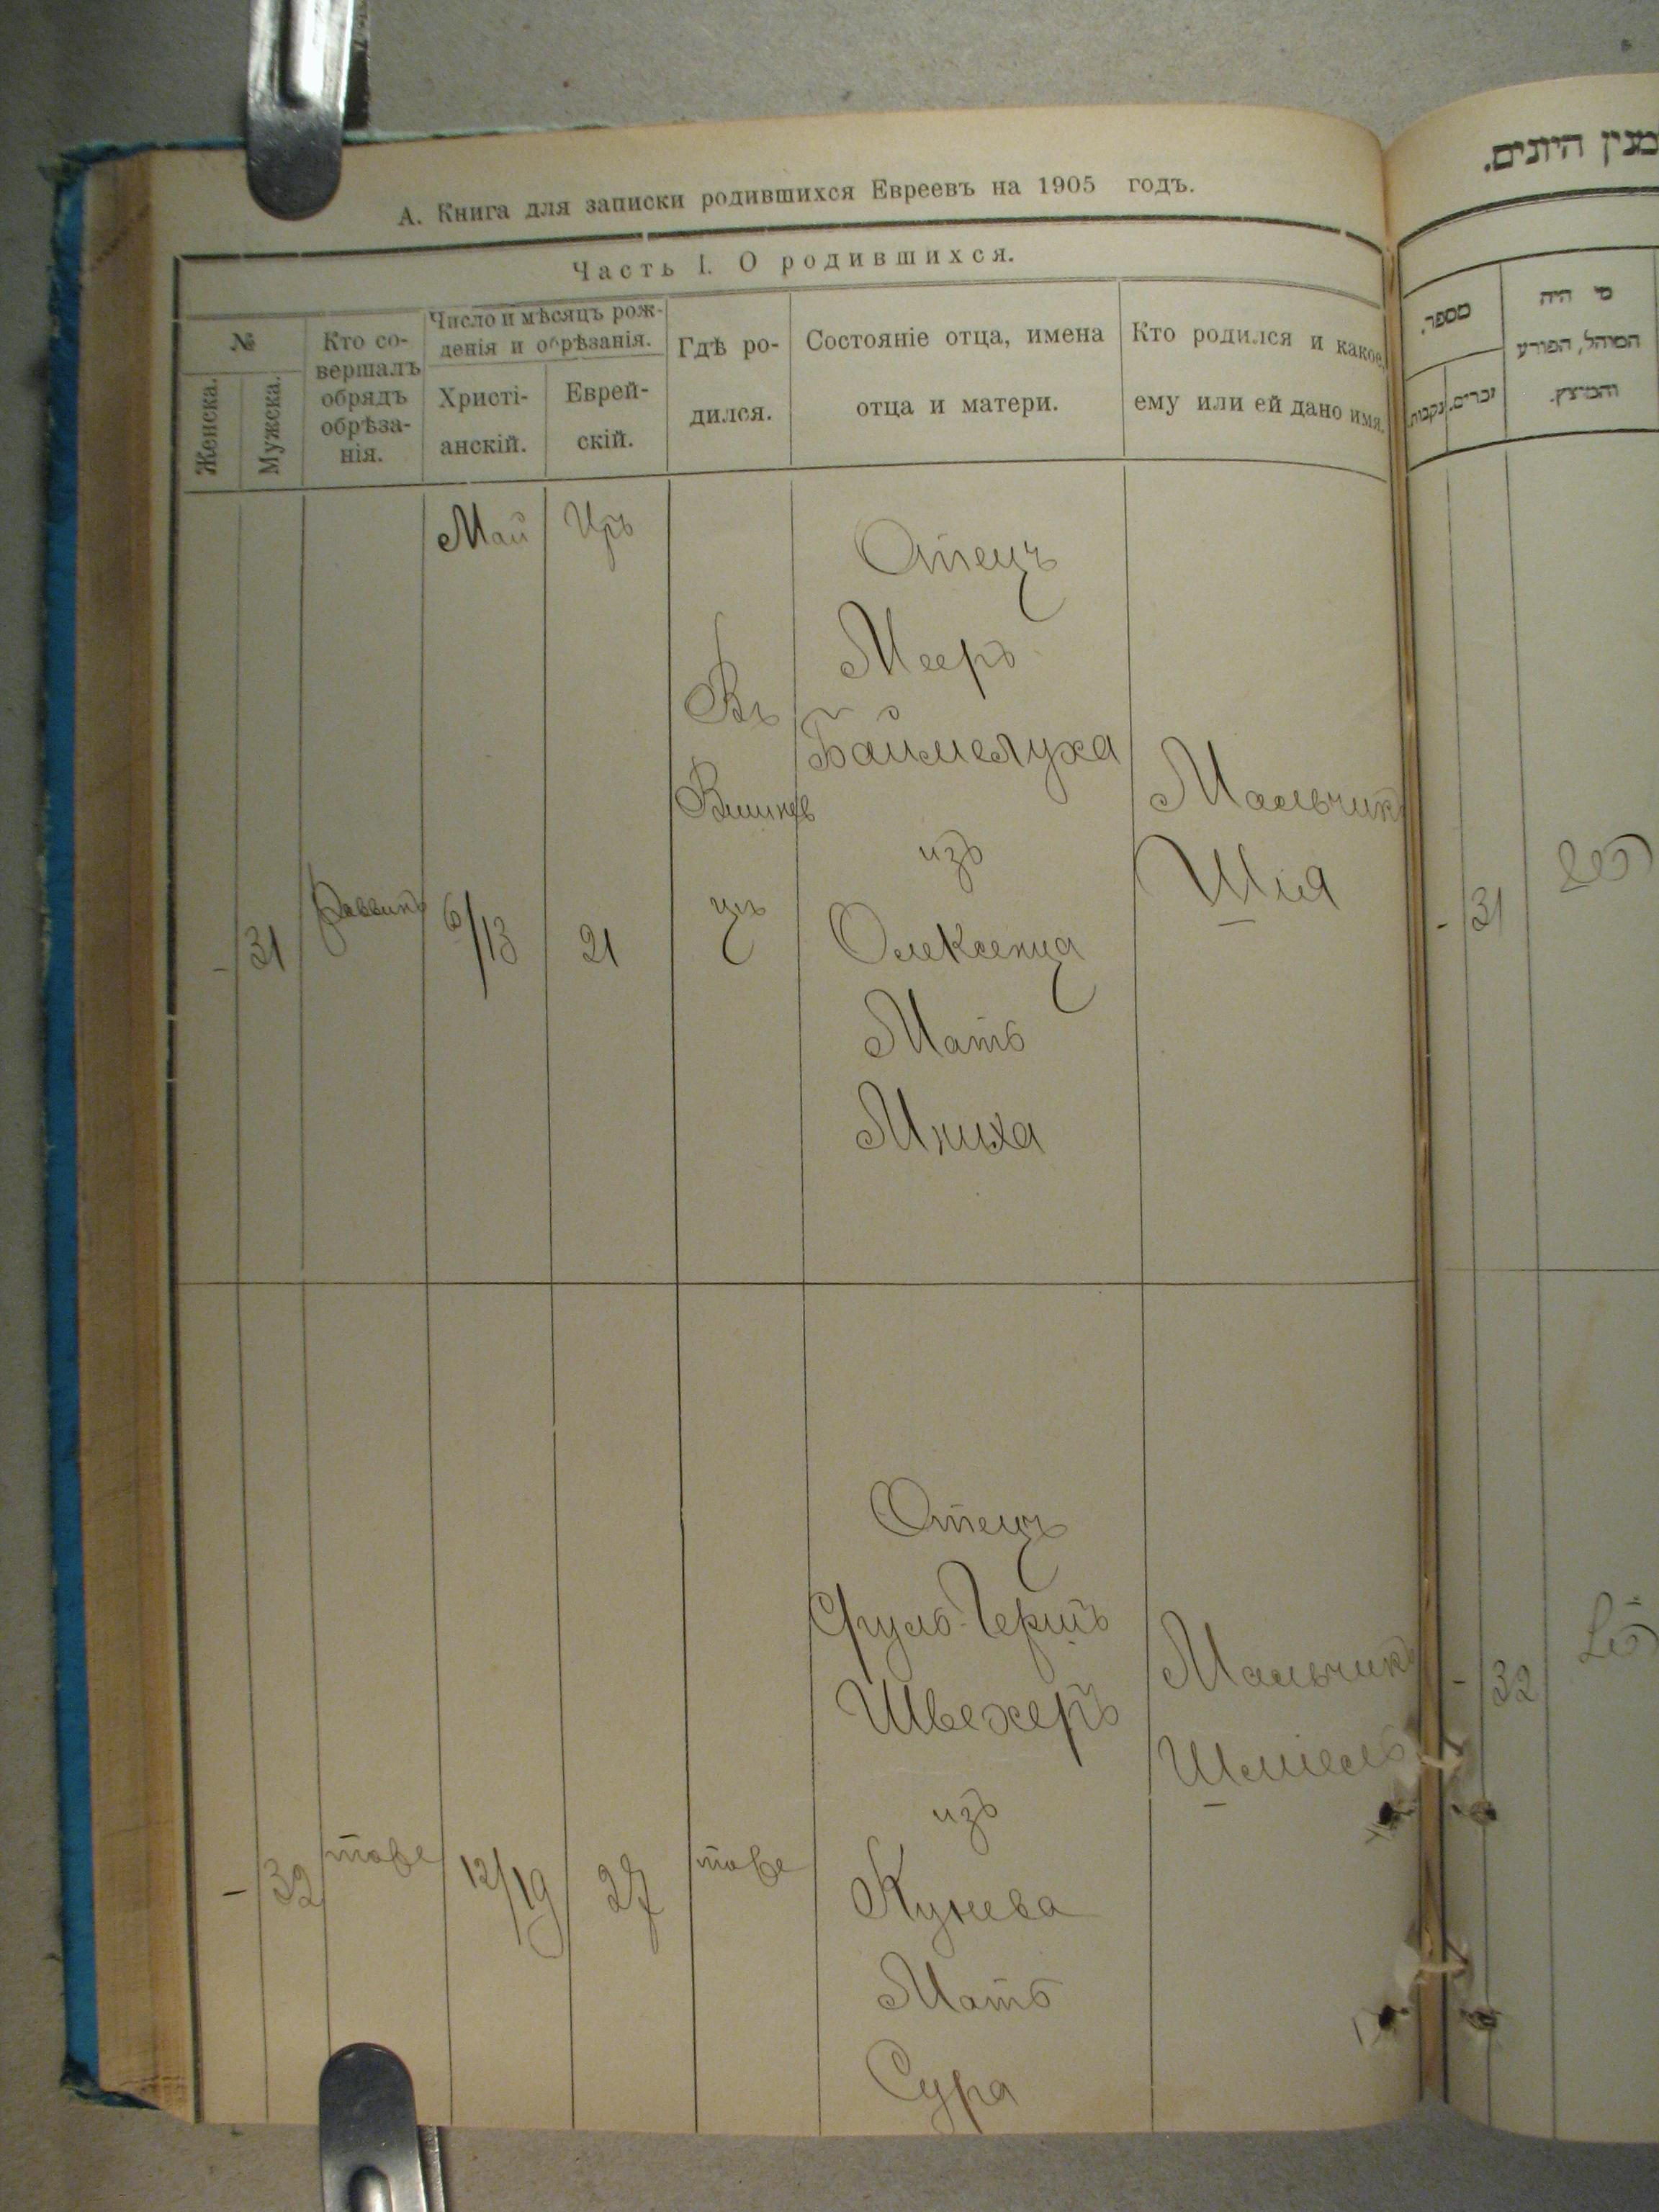 А. Книга для записки родившихся Евреевъ на 1905 годъ.
Часть I. О родившихся.
№
Женска.
Мужска.
Кто со-
вершалъ
обрядъ
обрѣза-
нія.
Число и мѣсяцъ рож-
денія и обрѣзанія.
Христі-
анскій.
Еврей-
скій.
Гдѣ ро-
дился.
Состояніе отца, имена
отца и матери.
Кто родился и какое
ему или ей дано имя.
Май
Иръ
-
31
раввинъ
6/13
21
Въ
Вишнев
цѣ
Отецъ
Мееръ
Баймелуха
изъ
Олексенца
Мать
Мниха
Мальчикъ
Шія
-
32
тоже
12/19
27
тоже
Отецъ
Гершъ
Швехеръ
изъ
Кунева
Мать
Сура
Мальчикъ
מנין היונים.
מספר.
נקבות.
זכרים.
מי היה
המוהל, הפורע
והמוצץ.
-
31
-
32